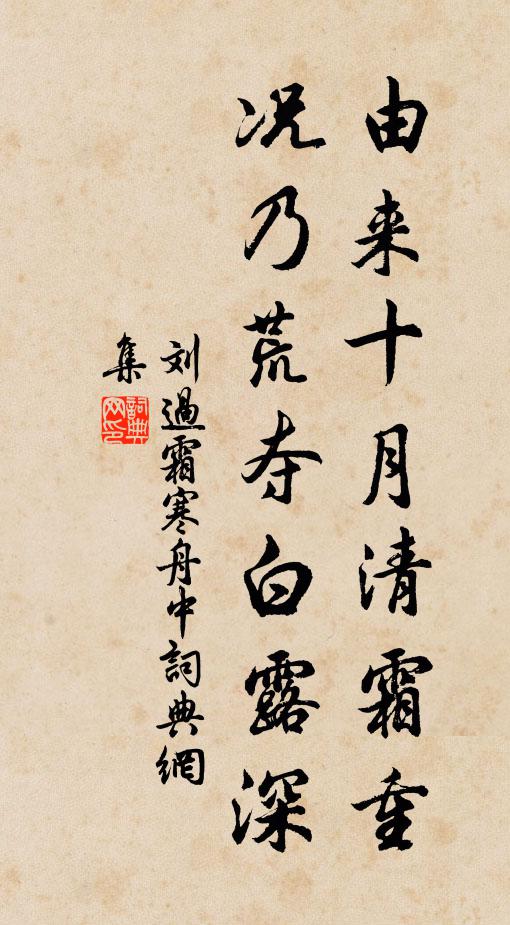 由来十月清霜重
况乃荒夺白露深
刘過霜寒舟中詞典網
集
詞典網印